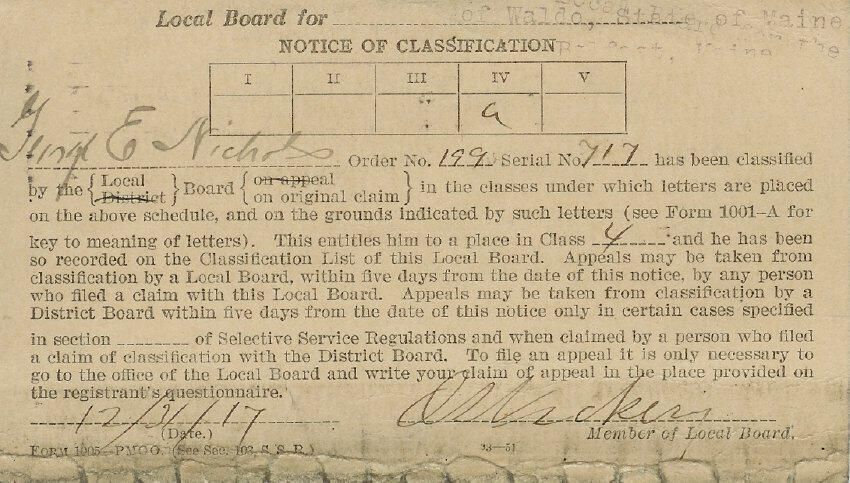 Local Board for of Waldo, State of Maine
Belfast, Maine
NOTICE OF CLASSIFICATION
I II III IV V
a
E Nichols Order No. 199 Serial No 717 has been classified
by the { Local District } Board { on appeal on original claim } in the classes under which letters are placed
on the above schedule, and on the grounds indicated by such letters (see Form 1001–A for
key to meaning of letters). This entitles him to a place in Class 4 and he has been
so recorded on the Classification List of this Local Board. Appeals may be taken from
classification by a Local Board, within five days from the date of this notice, by any person
who filed a claim with this Local Board. Appeals may be taken from classification by a
District Board within five days from the date of this notice only in certain cases specified
in section ________ of Selective Service Regulations and when claimed by a person who filed
a claim of classification with the District Board. To file an appeal it is only necessary to
go to the office of the Local Board and write your claim of appeal in the place provided on
the registrant's questionnaire.
12/31/17
(Date.) Member of Local Board.
Form 1005—PMGO. (See Sec. 103 S. S. R.) 33—51